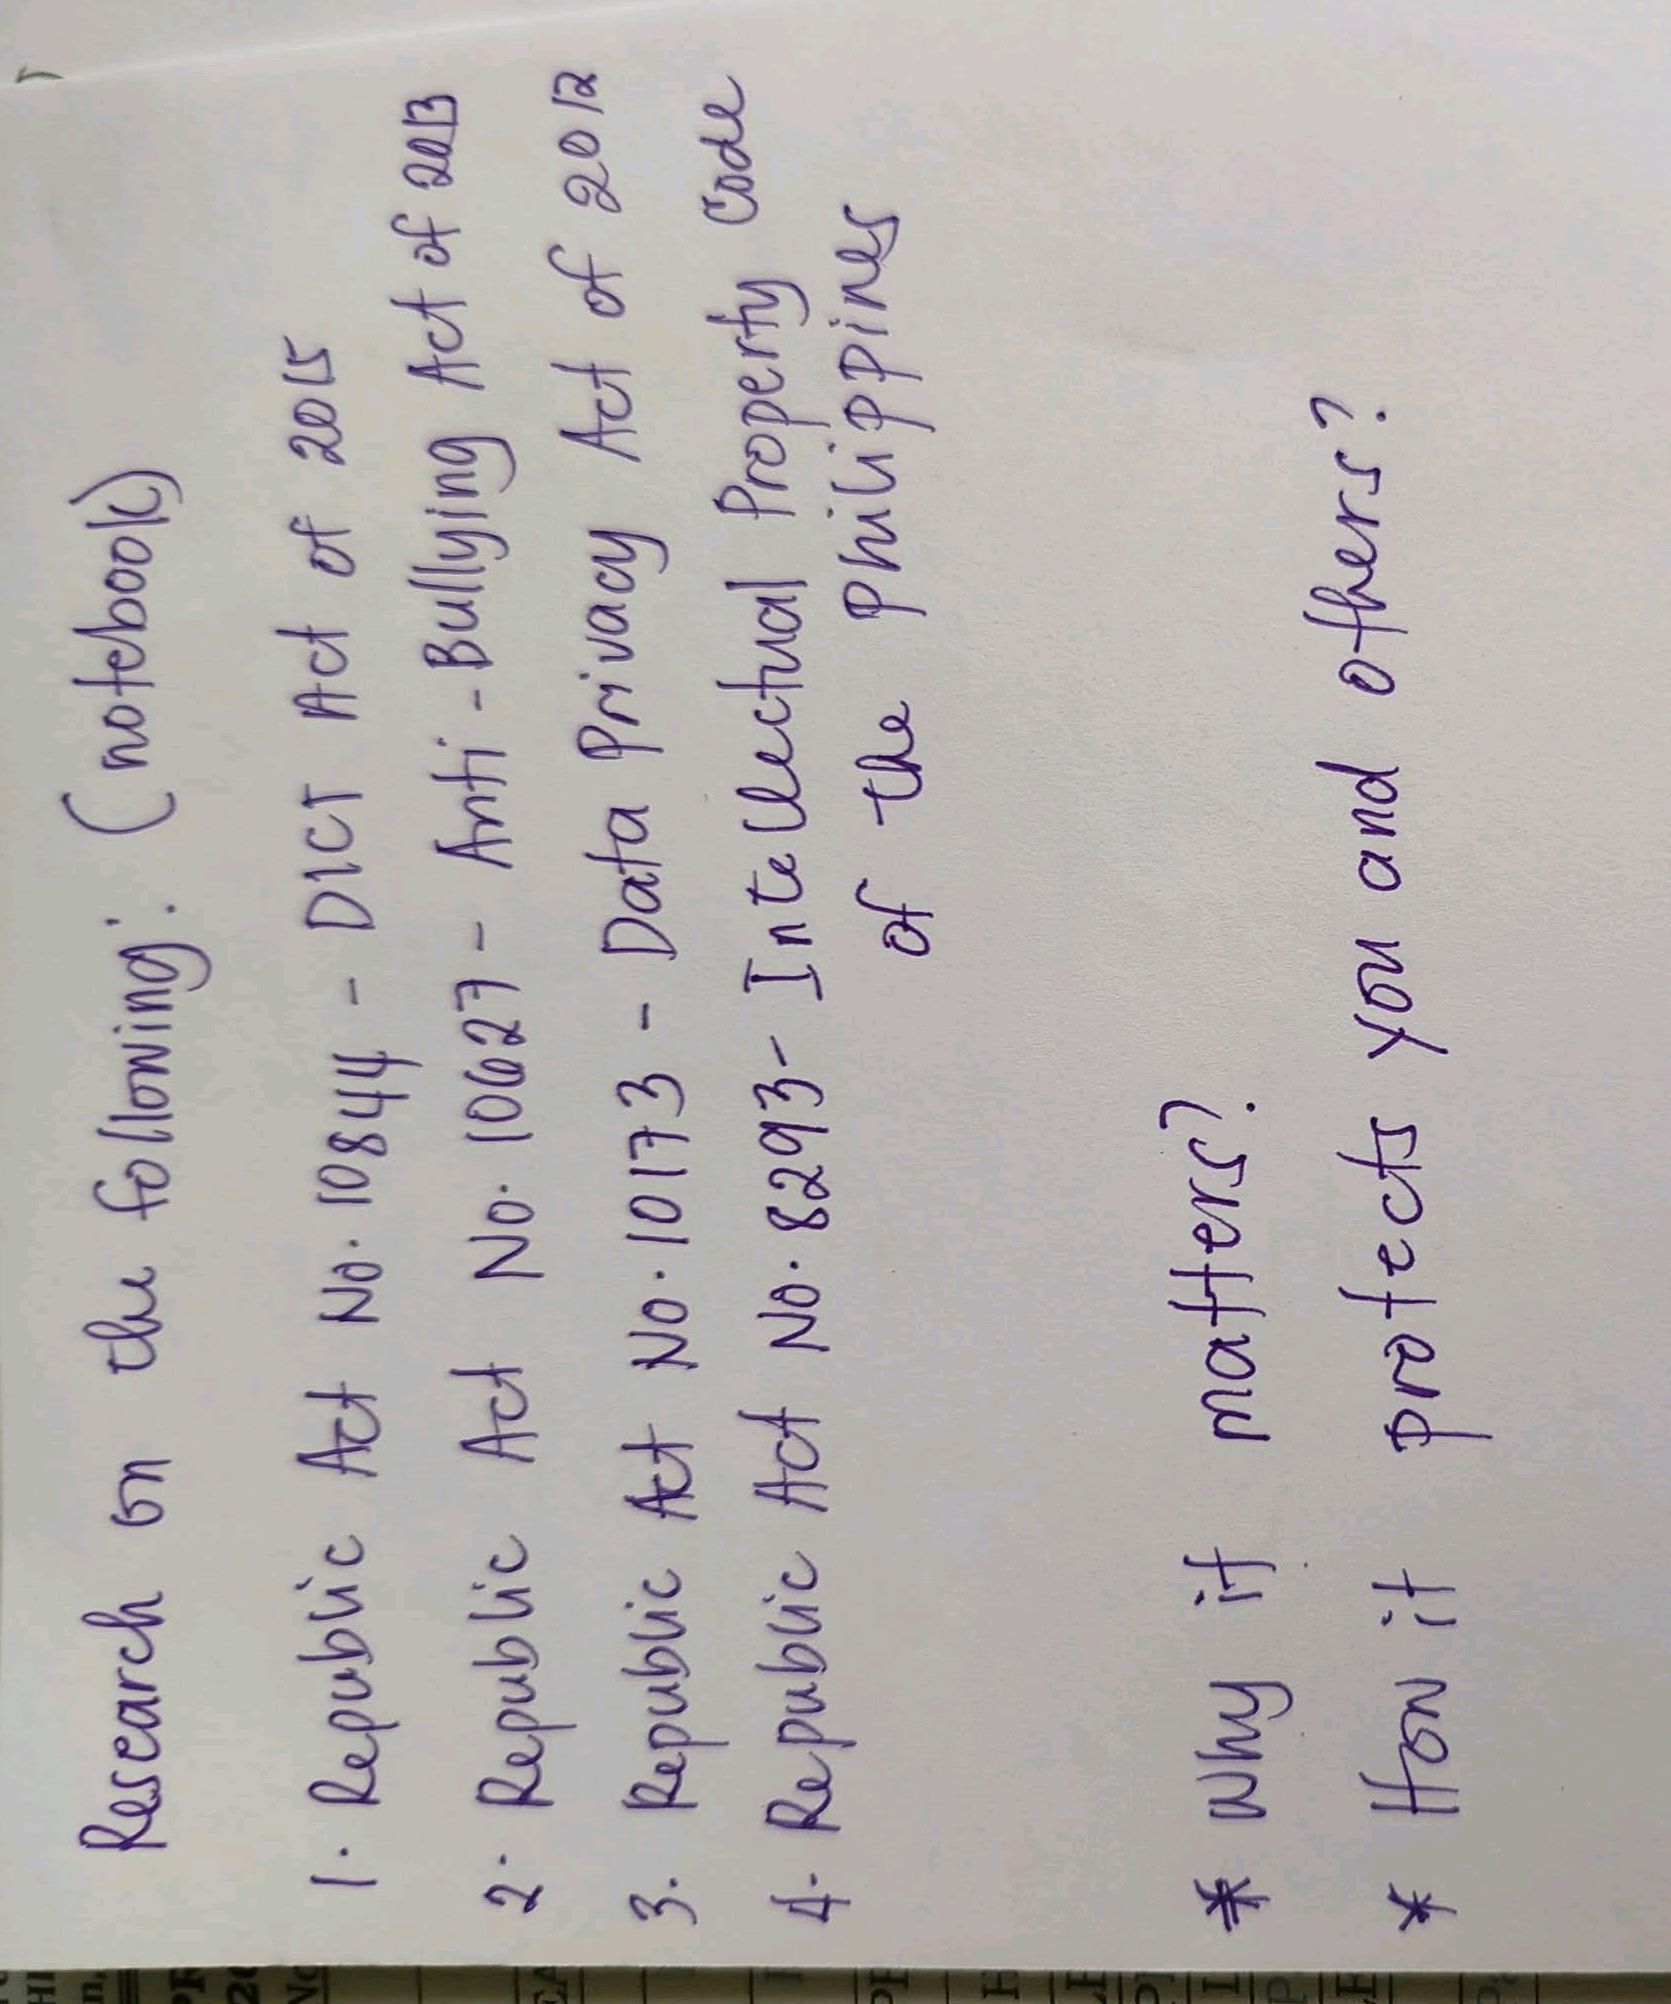 Research on the following: (notebook)
1. Republic Act No. 10844 - DICT Act of 2015
2. Republic Act No. 10627 - Anti-Bullying Act of 2013
3. Republic Act No. 10173 - Data Privacy Act of 2012
4. Republic Act No. 8293 - Intellectual Property Code
of the Philippines
* Why it matters?
* How it protects you and others?